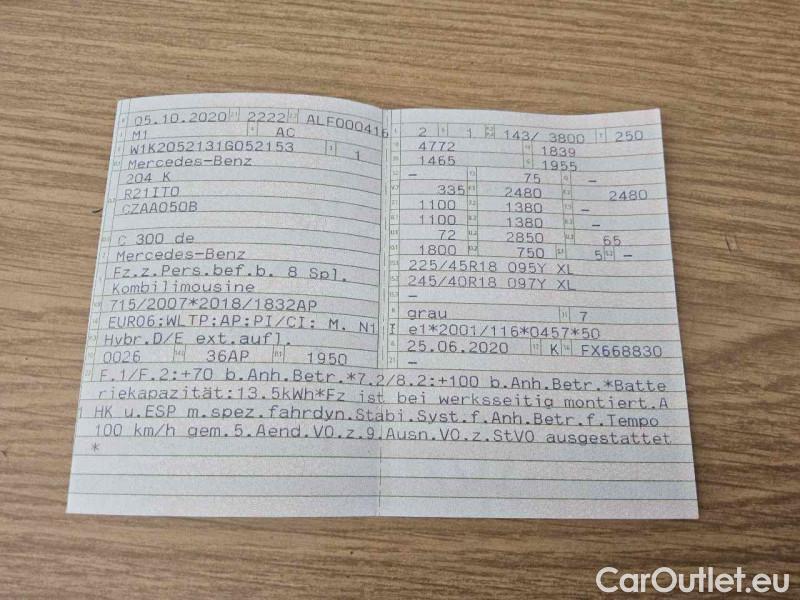 05.10.2020 2222 ALF000416
M1 AC
W1K2052131G052153 1
Mercedes-Benz
204 K
R21IT0
CZAA050B
C 300 de
Mercedes-Benz
Fz.z.Pers.bef.b. 8 Spl.
Kombilimousine
715/2007*2018/1832AP
EURO6;WLTP;AP;PI/CI; M, N1 I
Hybr.D/E ext.aufl.
0026 36AP 1950
2 1 143/ 3800 250
4772 1839
1465 1955
– 75 –
335 2480 2480
1100 1380 –
1100 1380 –
72 2850 65
1800 750 5 –
225/45R18 095Y XL
245/40R18 097Y XL
–
grau 7
e1*2001/116*0457*50
25.06.2020 K FX668830
–
F.1/F.2:+70 b.Anh.Betr.*7.2/8.2:+100 b.Anh.Betr.*Batte
riekapazität:13.5kWh*Fz ist bei werksseitig montiert.A
HK u.ESP m.spez.fahrdyn.Stabi.Syst.f.Anh.Betr.f.Tempo
100 km/h gem.5.Aend.VO.z.9.Ausn.VO.z.StVO ausgestattet
*
CarOutlet.eu